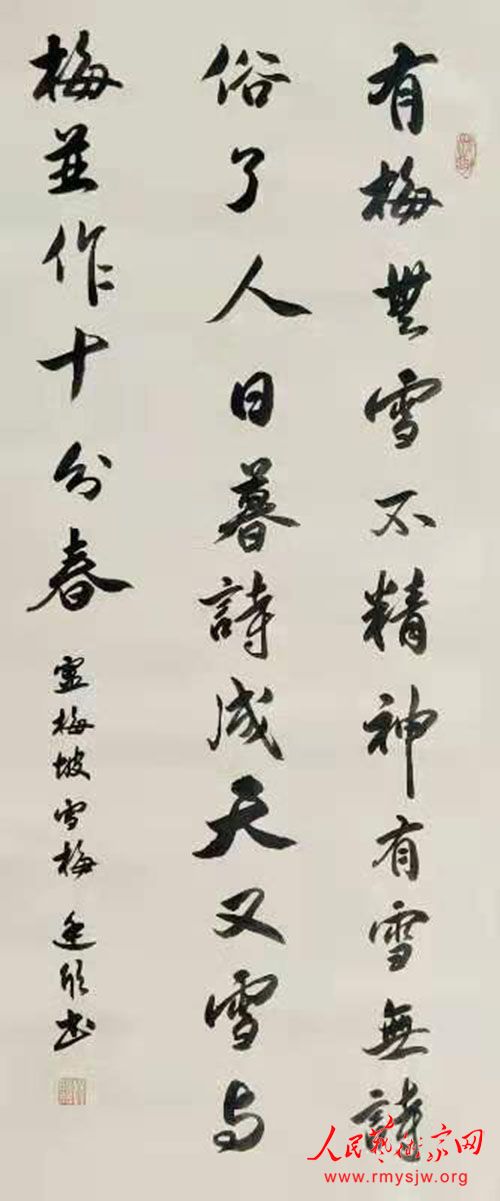 有梅無雪不精神有雪無詩
俗了人日暮詩成天又雪与
梅並作十分春
盧梅坡雪梅
書
人民艺术家网
www.rmysjw.org